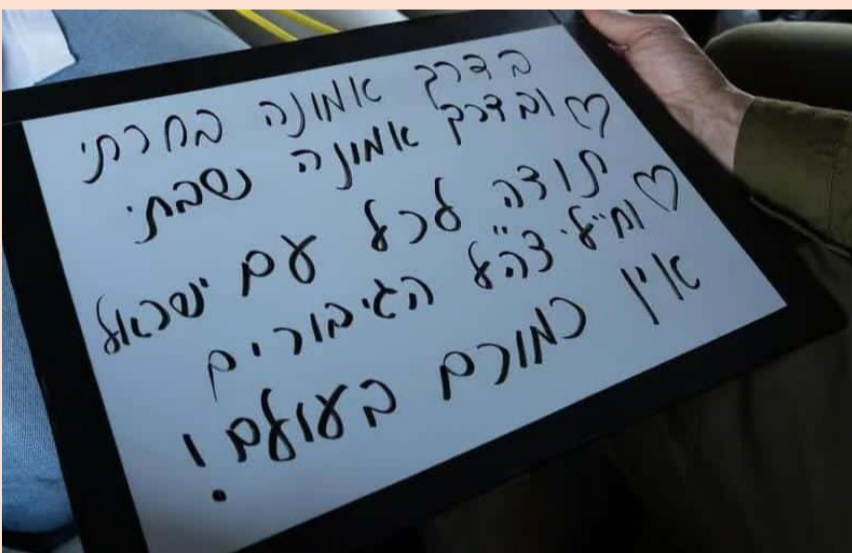 בדרך אמונה בחרתי
♡ ובדרך אמונה שבתי
תודה לכל עם ישראל
♡ וחיילי צה"ל הגיבורים
אין כמותם בעולם!